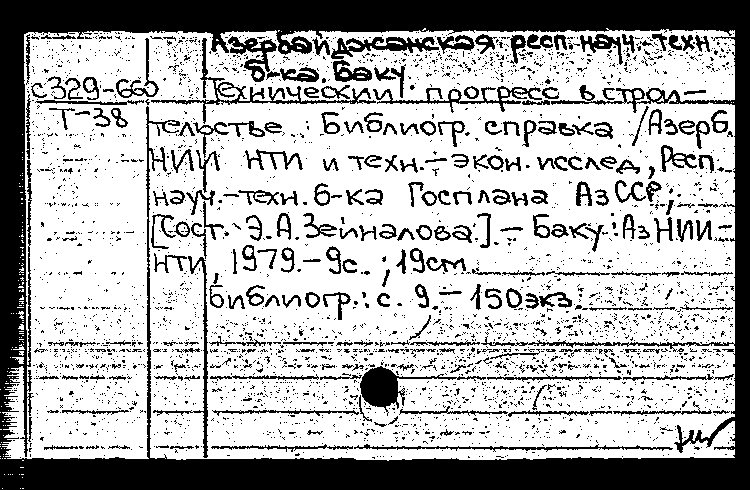 Азербайджанская респ. науч.-техн.
б-ка. Баку
с329-660
Технический прогресс в строи-
Т-38
тельстве : Библиогр. справка / Азерб.
НИИ НТИ и техн.-экон. исслед., Респ.
науч.-техн. б-ка Госплана АзССР ;
[Сост. Э.А.Зейналова]. - Баку : АзНИИ-
НТИ, 1979. - 9с. ; 19см.
Библиогр.: с. 9. - 150экз.